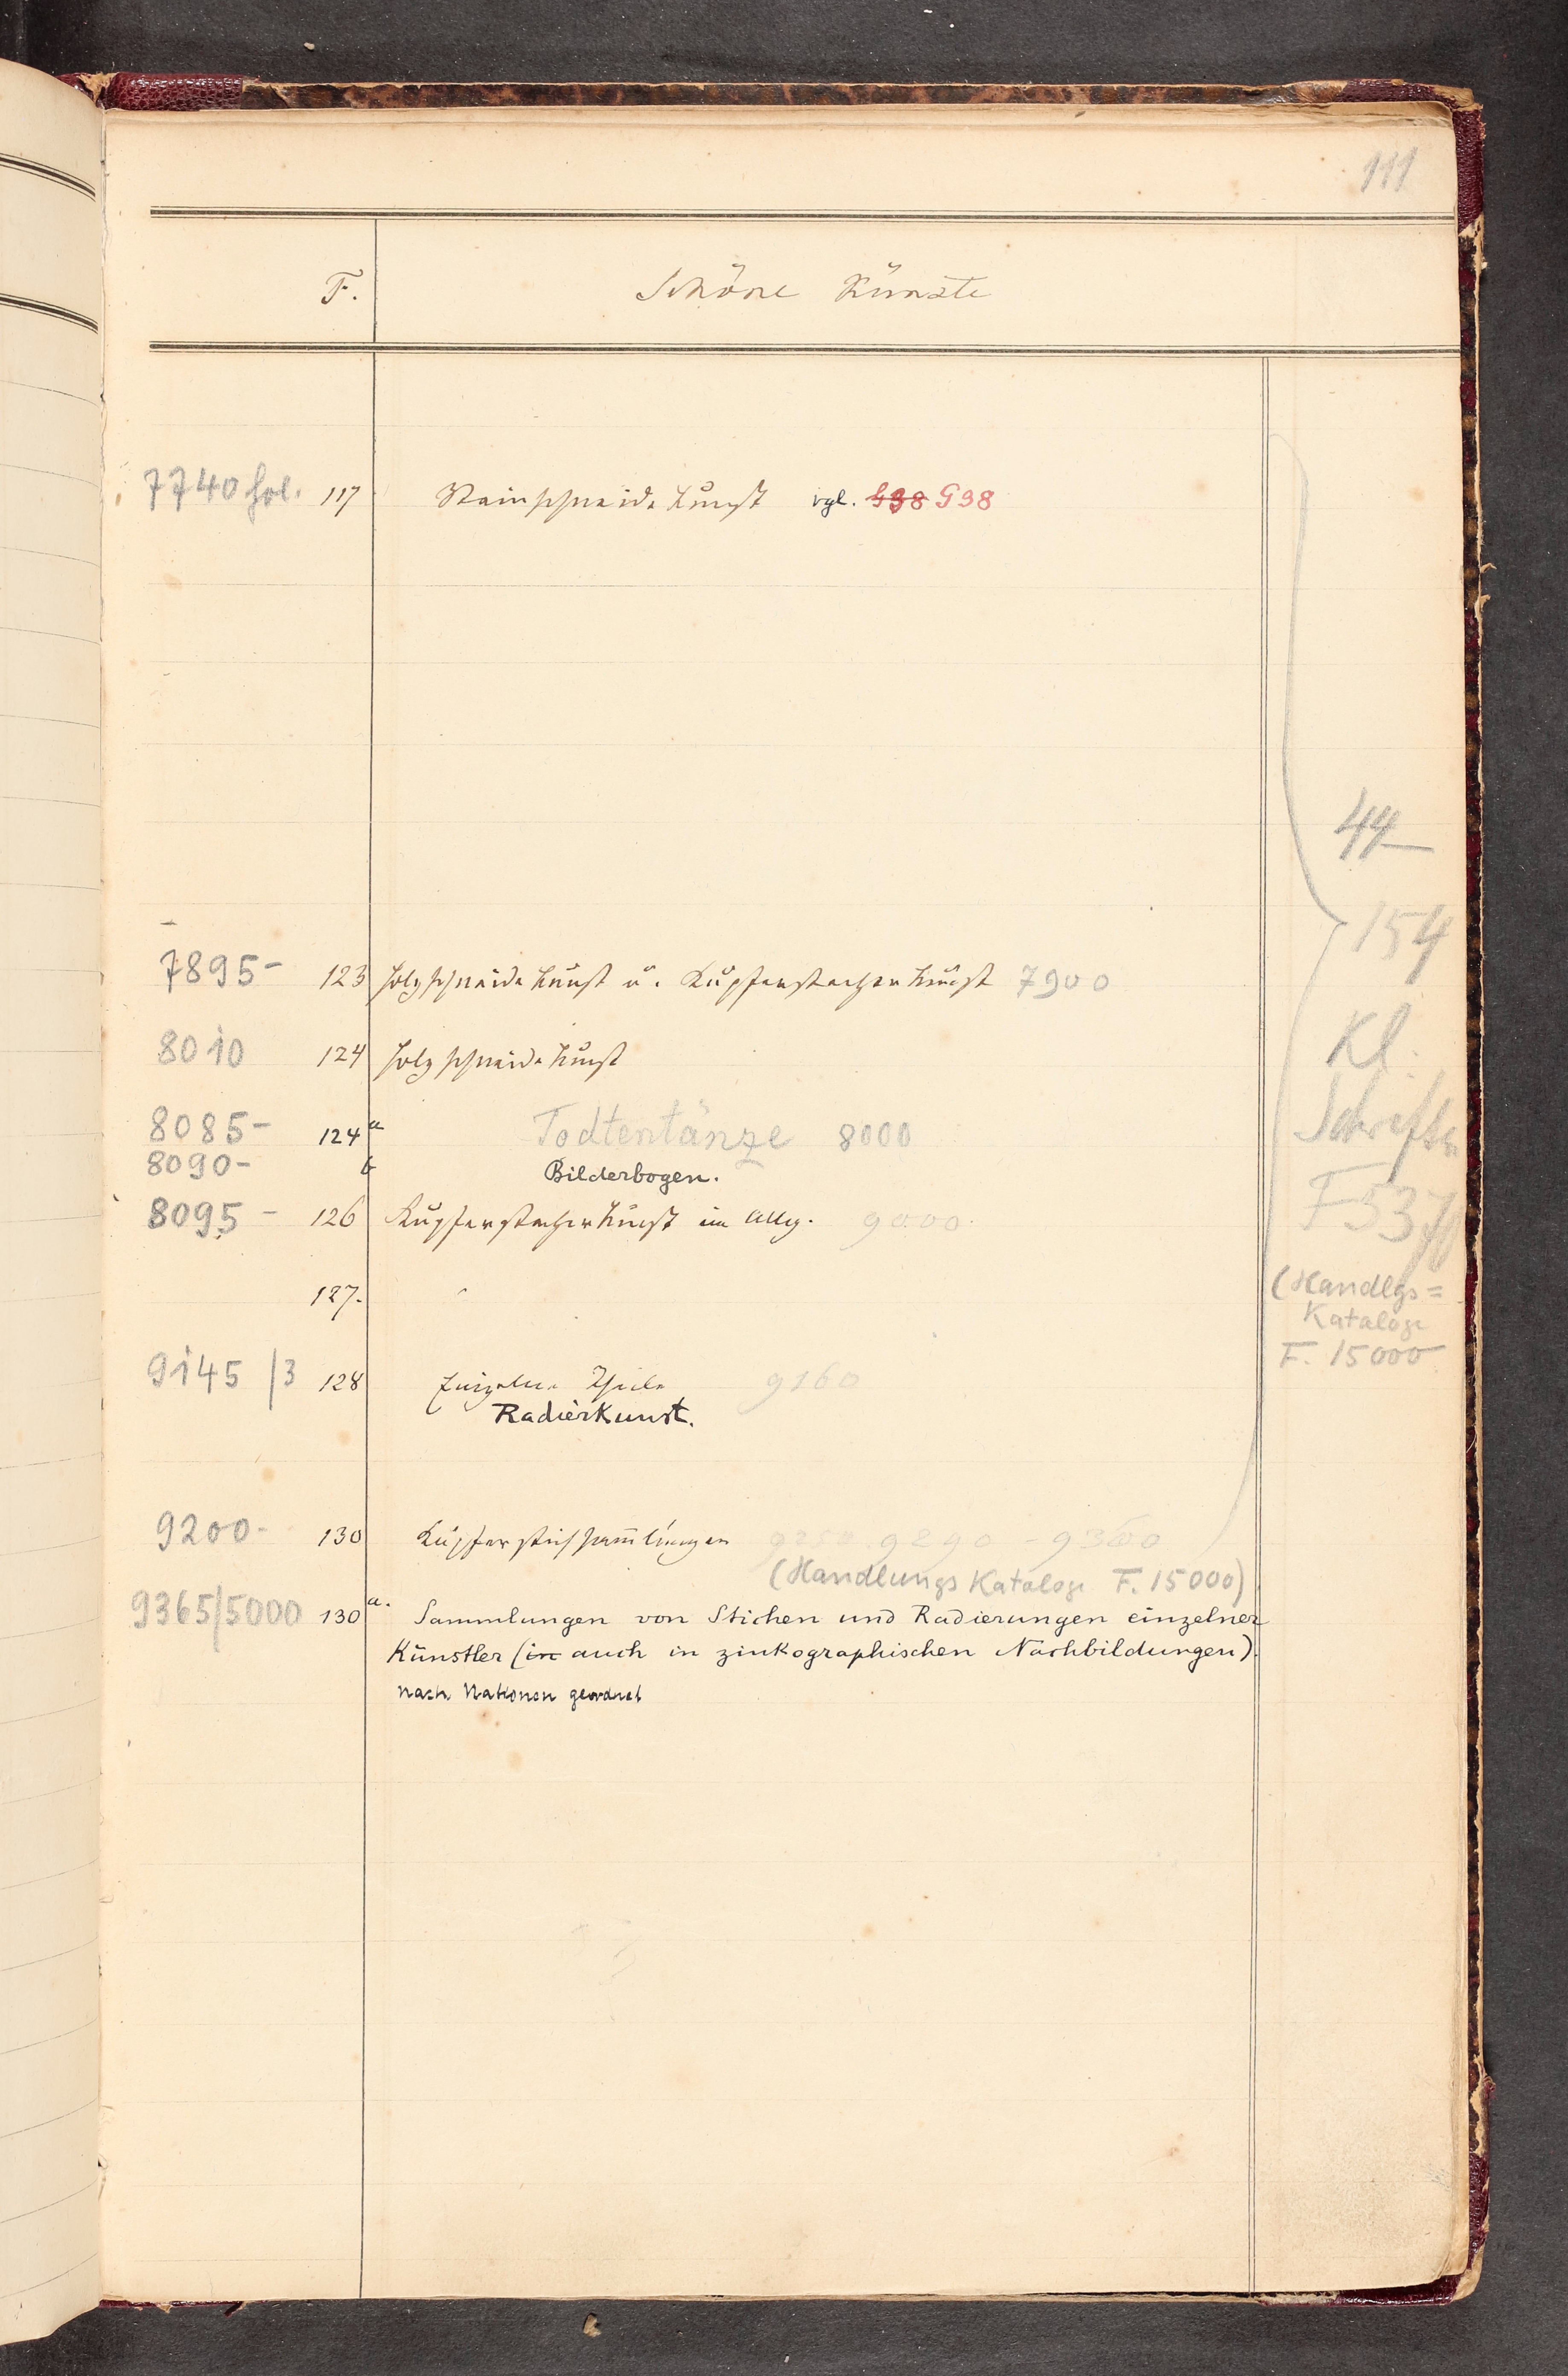 111
F. Schöne Künste
7740 fol. 117 Steinschneidekunst vgl. G38 G38
44
154
7895- 123 Holzschneidekunst u. Kupferstecherkunst 7900
8010 124 Holzschneidekunst
Kl.
Schriften
8085- 124 a Todtentänze 8000
8090- b Bilderbogen.
8095- 126 Kupferstecherkunst im Allg. 9000
F 537
127.
(Handlgs=
Kataloge
F. 15000
9145 /3 128 Einzelne Theile 9160
Radierkunst.
9200- 130 Kupferstichsam̄lungen 9290 - 9360
(Handlungs Kataloge F. 15000)
9365/5000 130 a. Sammlungen von Stichen und Radierungen einzelner
Künstler (in auch in zinkographischen Nachbildungen).
nach Nationen geordnet